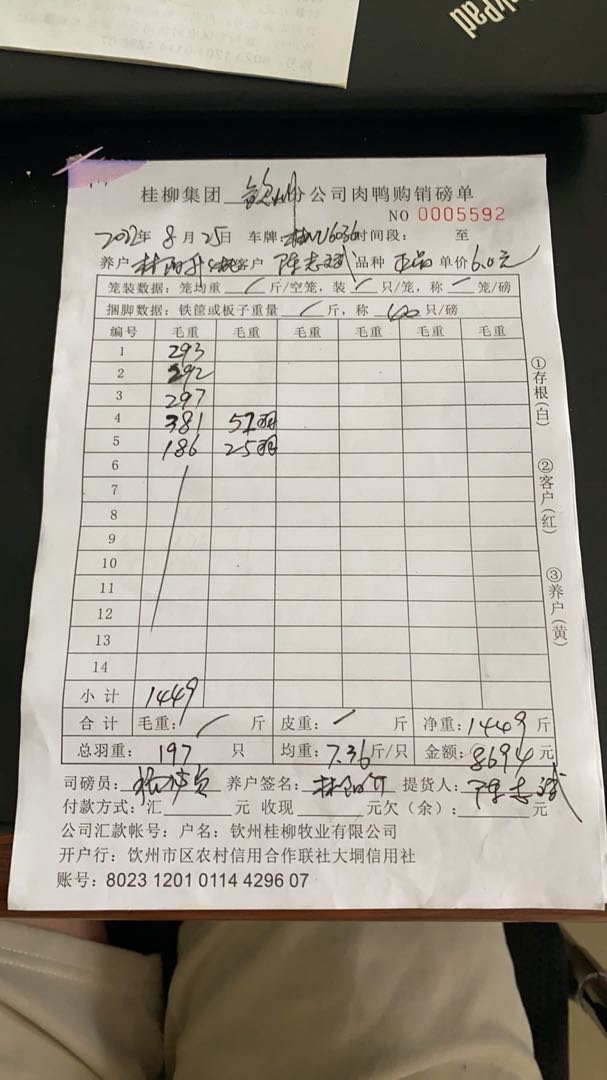 kPad
8023 1201 0114 4296 07
桂柳集团 钦州 分公司肉鸭购销磅单
NO 0005592
2022年 8月25日 车牌: 时间段: 至
养户 客户 陈志斌 品种 正品 单价 6.0元
笼装数据: 笼均重 / 斤/空笼, 装 / 只/笼, 称 / 笼/磅
捆脚数据: 铁筐或板子重量 / 斤, 称 40 只/磅
编号 毛重 毛重 毛重 毛重 毛重 毛重
1 293
2 292
3 297
4 381 57羽
5 186 25羽
6
7
8
9
10
11
12
13
14
小计 1449
合计 毛重: / 斤 皮重: / 斤 净重: 1449 斤
总羽重: 197 只 均重: 7.36 斤/只 金额: 8694 元
司磅员: 养户签名: 提货人: 陈志斌
付款方式: 汇 元 收现 元欠(余): 元
公司汇款帐号: 户名: 钦州桂柳牧业有限公司
开户行: 饮州市区农村信用合作联社大垌信用社
账号: 8023 1201 0114 4296 07
①存根(白)
②客户(红)
③养户(黄)